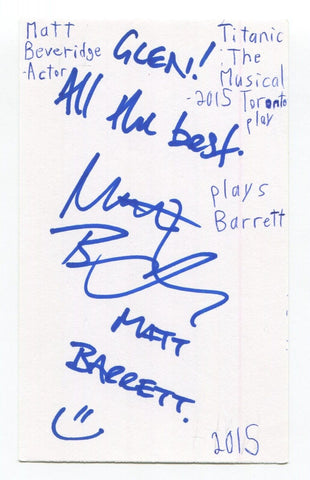 Matt
Beveridge
-Actor
Titanic
:The
Musical
-2015 Toronto
play
GLEN!
All the best.
plays
Barrett
Matt
B
MATT
BARRETT.
2015